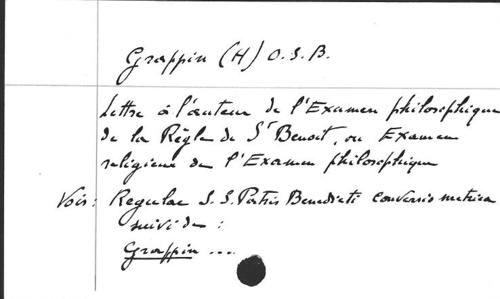 Grappin (H) O.S.B.
Lettre à l'auteur de l'Examen philosophique
de la Règle de St Benoit, ou Examen
religieux de l'Examen philosophique
Voir: Regulae S.S. Patris Benedicti conversio metrica
suivi de :
Grappin ...